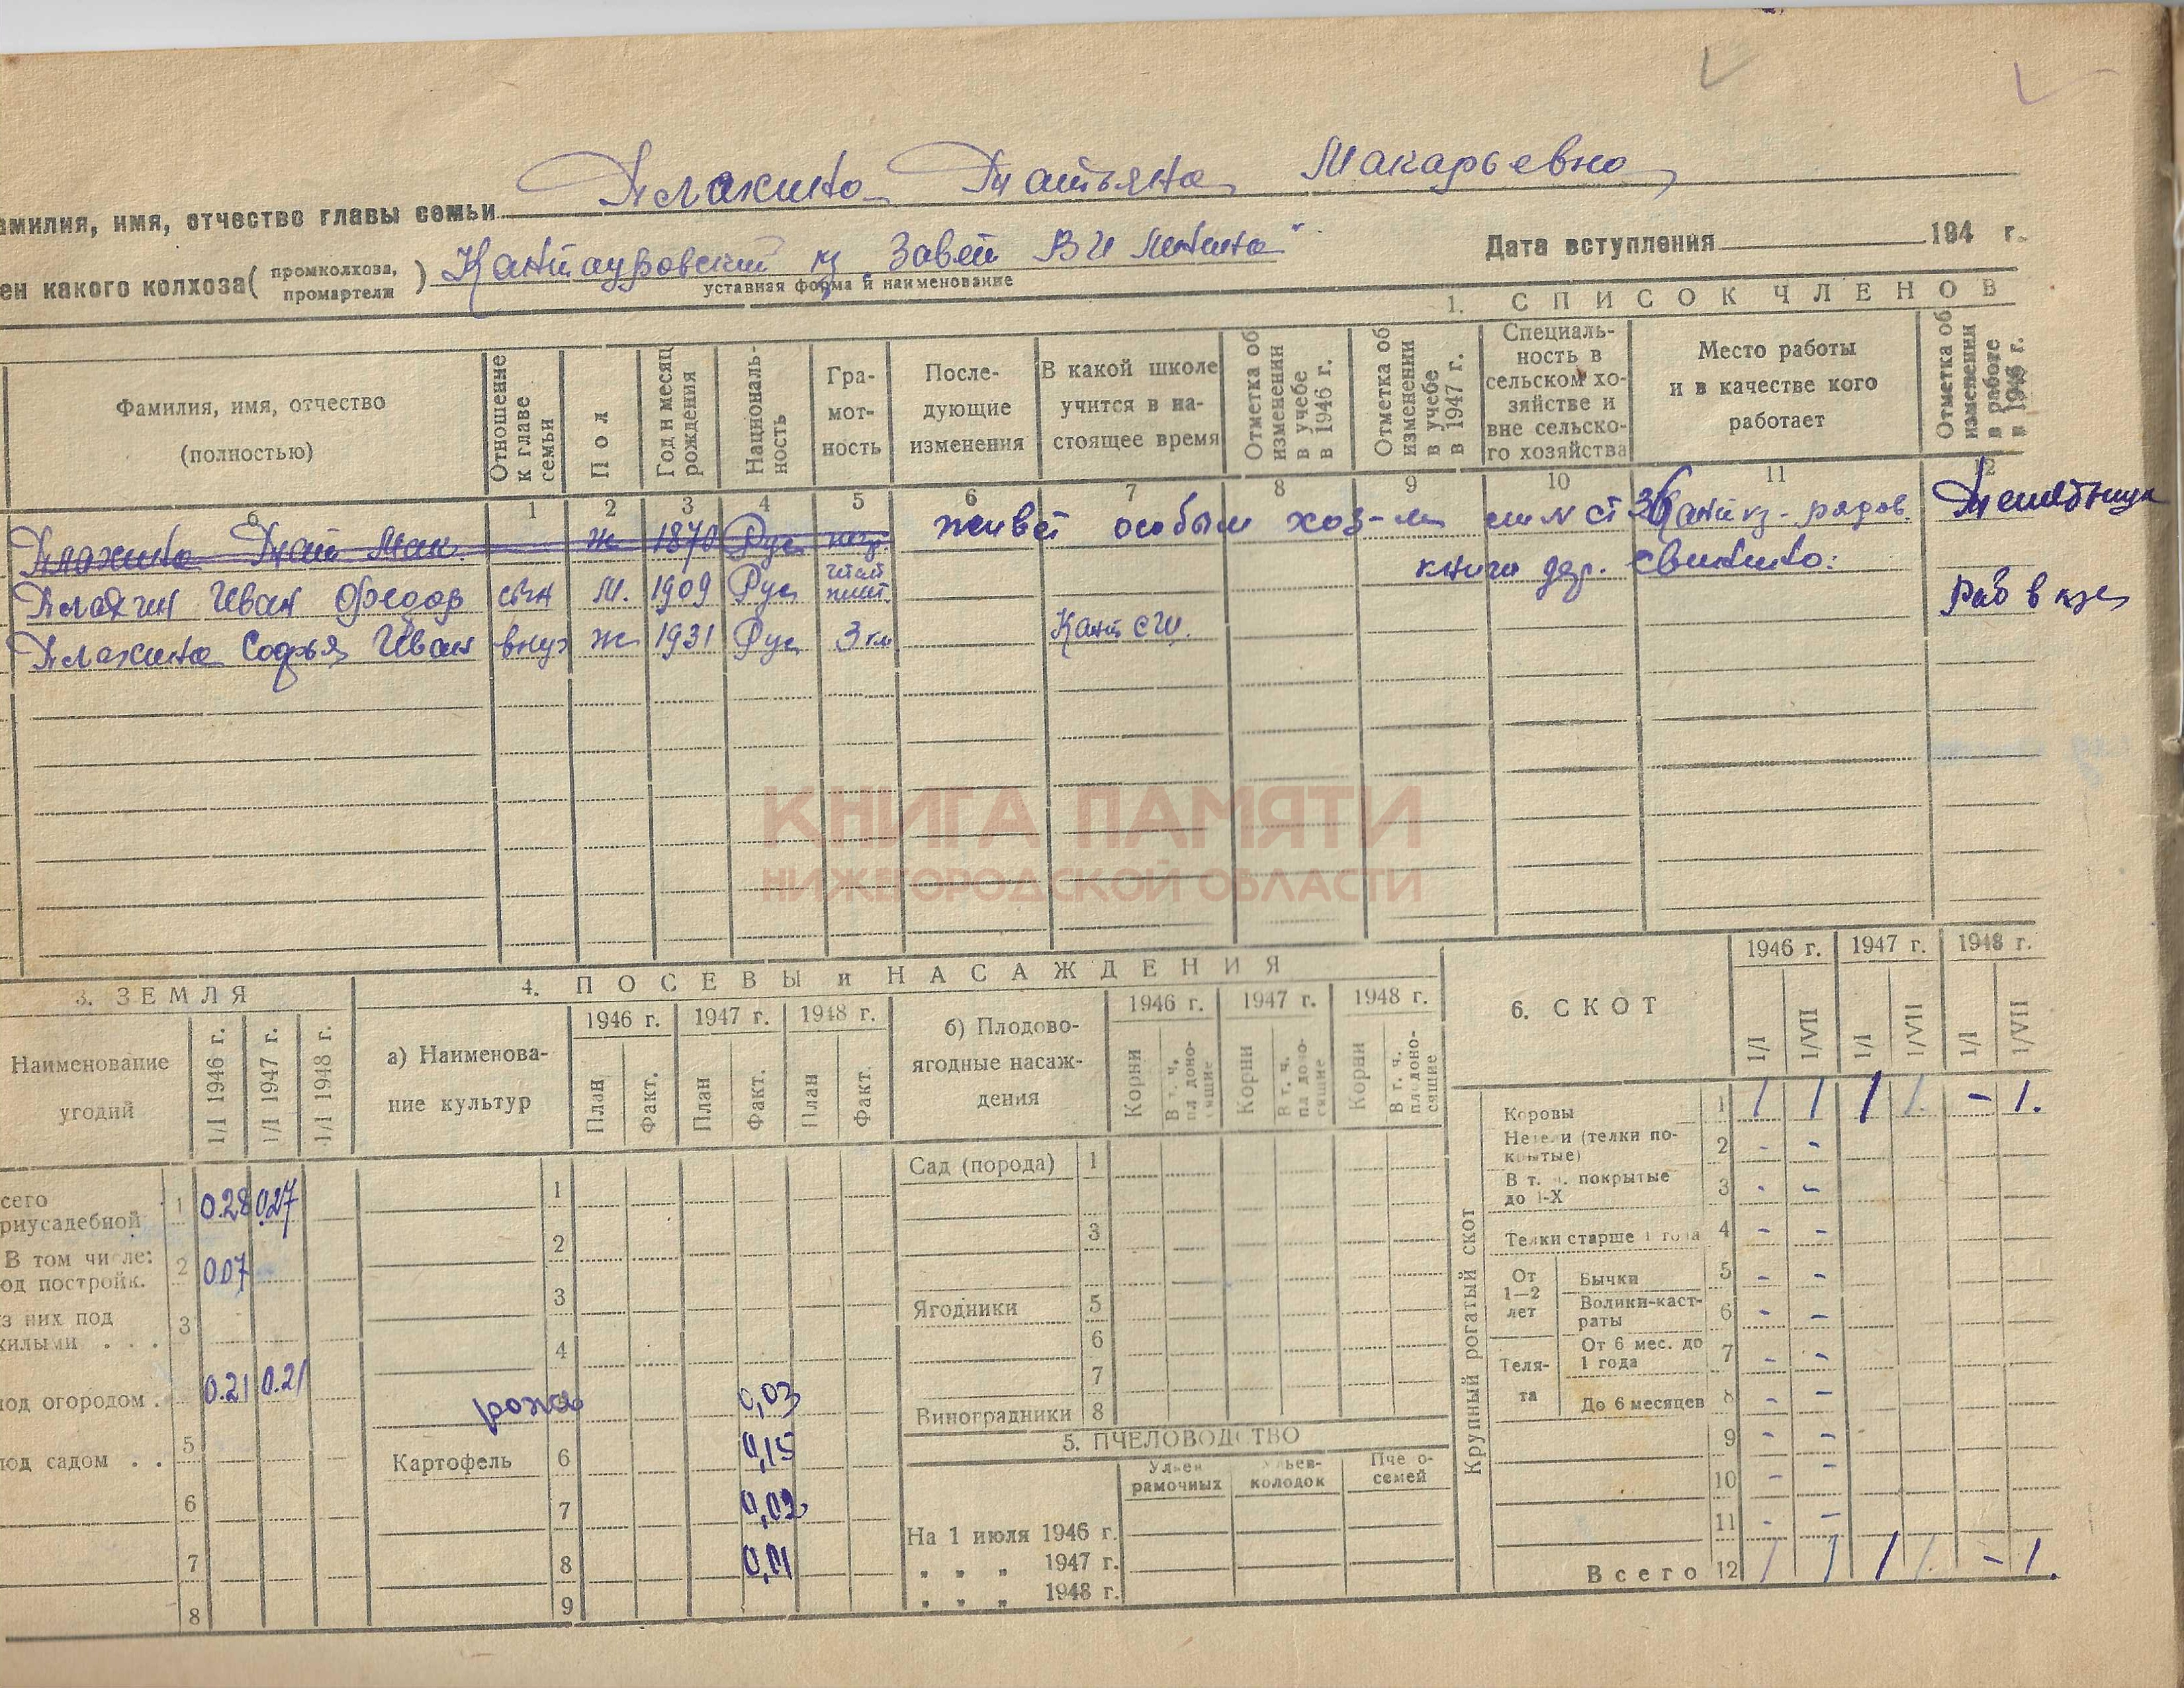 Плахина Татьяна Макарьевна
амилия, имя, отчество главы семьи
ен какого колхоза (промколхоза, промартели) Кантауровский к/з Завет В И Ленина"
уставная форма и наименование
Дата вступления 194 г.
1. СПИСОК ЧЛЕНОВ
Фамилия, имя, отчество (полностью)
Отношение к главе семьи
Пол
Год и месяц рождения
Националь-ность
Гра-мот-ность
После-дующие изменения
В какой школе учится в на-стоящее время
Отметка об изменении в учебе в 1946 г.
Отметка об изменении в учебе в 1947 г.
Специаль-ность в сельском хо-зяйстве и вне сельско-го хозяйства
Место работы и в качестве кого работает
Отметка об изменении в работе в 1946 г.
б 1 2 3 4 5 6 7 8 9 10 11 12
Плахина Тат Мак. ж 1870 Рус негр. живет особым хоз-м
книги дер.
Плахин Иван Федор сын М. 1909 Рус читат пишет Раб в к/зе
Плахина Софья Иван внуч ж 1931 Рус 3 кл Кант сш.
КНИГА ПАМЯТИ
НИЖЕГОРОДСКОЙ ОБЛАСТИ
3. ЗЕМЛЯ
Наименование угодий
1/I 1946 г. 1/I 1947 г. 1/I 1948 г.
сего риусадебной 1 0.28 0.27
В том числе: од постройк. 2 0.07
з них под жилыми . . . 3
под огородом . 0.21 0.21
под садом . . 5
6
7
8
4. ПОСЕВЫ и НАСАЖДЕНИЯ
а) Наименова-ние культур
1946 г. 1947 г. 1948 г.
План Факт. План Факт. План Факт.
1
2
3
4
рожь 0,03
Картофель 6 0,15
7 0,02
8 0,01
9
б) Плодово-ягодные насаж-дения
1946 г. 1947 г. 1948 г.
Корни В т. ч. плодоно-сящие Корни В т. ч. плодоно-сящие Корни В т. ч. плодоно-сящие
Сад (порода) 1
3
Ягодники 5
6
7
Виноградники 8
5. ПЧЕЛОВОДСТВО
Ульев рамочных Ульев-колодок Пчело-семей
На 1 июля 1946 г.
" " " 1947 г.
" " " 1948 г.
6. СКОТ
1946 г. 1947 г. 1948 г.
1/I 1/VII 1/I 1/VII 1/I 1/VII
Крупный рогатый скот
Коровы 1 1 1 1 1 - 1.
Нетели (телки по-крытые) 2 - -
В т. ч. покрытые до 1-X 3 - -
Телки старше 1 года 4 - -
От 1—2 лет
Бычки 5 - -
Волики-каст-раты 6 - -
Теля-та
От 6 мес. до 1 года 7 - -
До 6 месяцев 8 - -
9 - -
10 - -
11 - -
Всего 12 1 1 1 1 - 1.